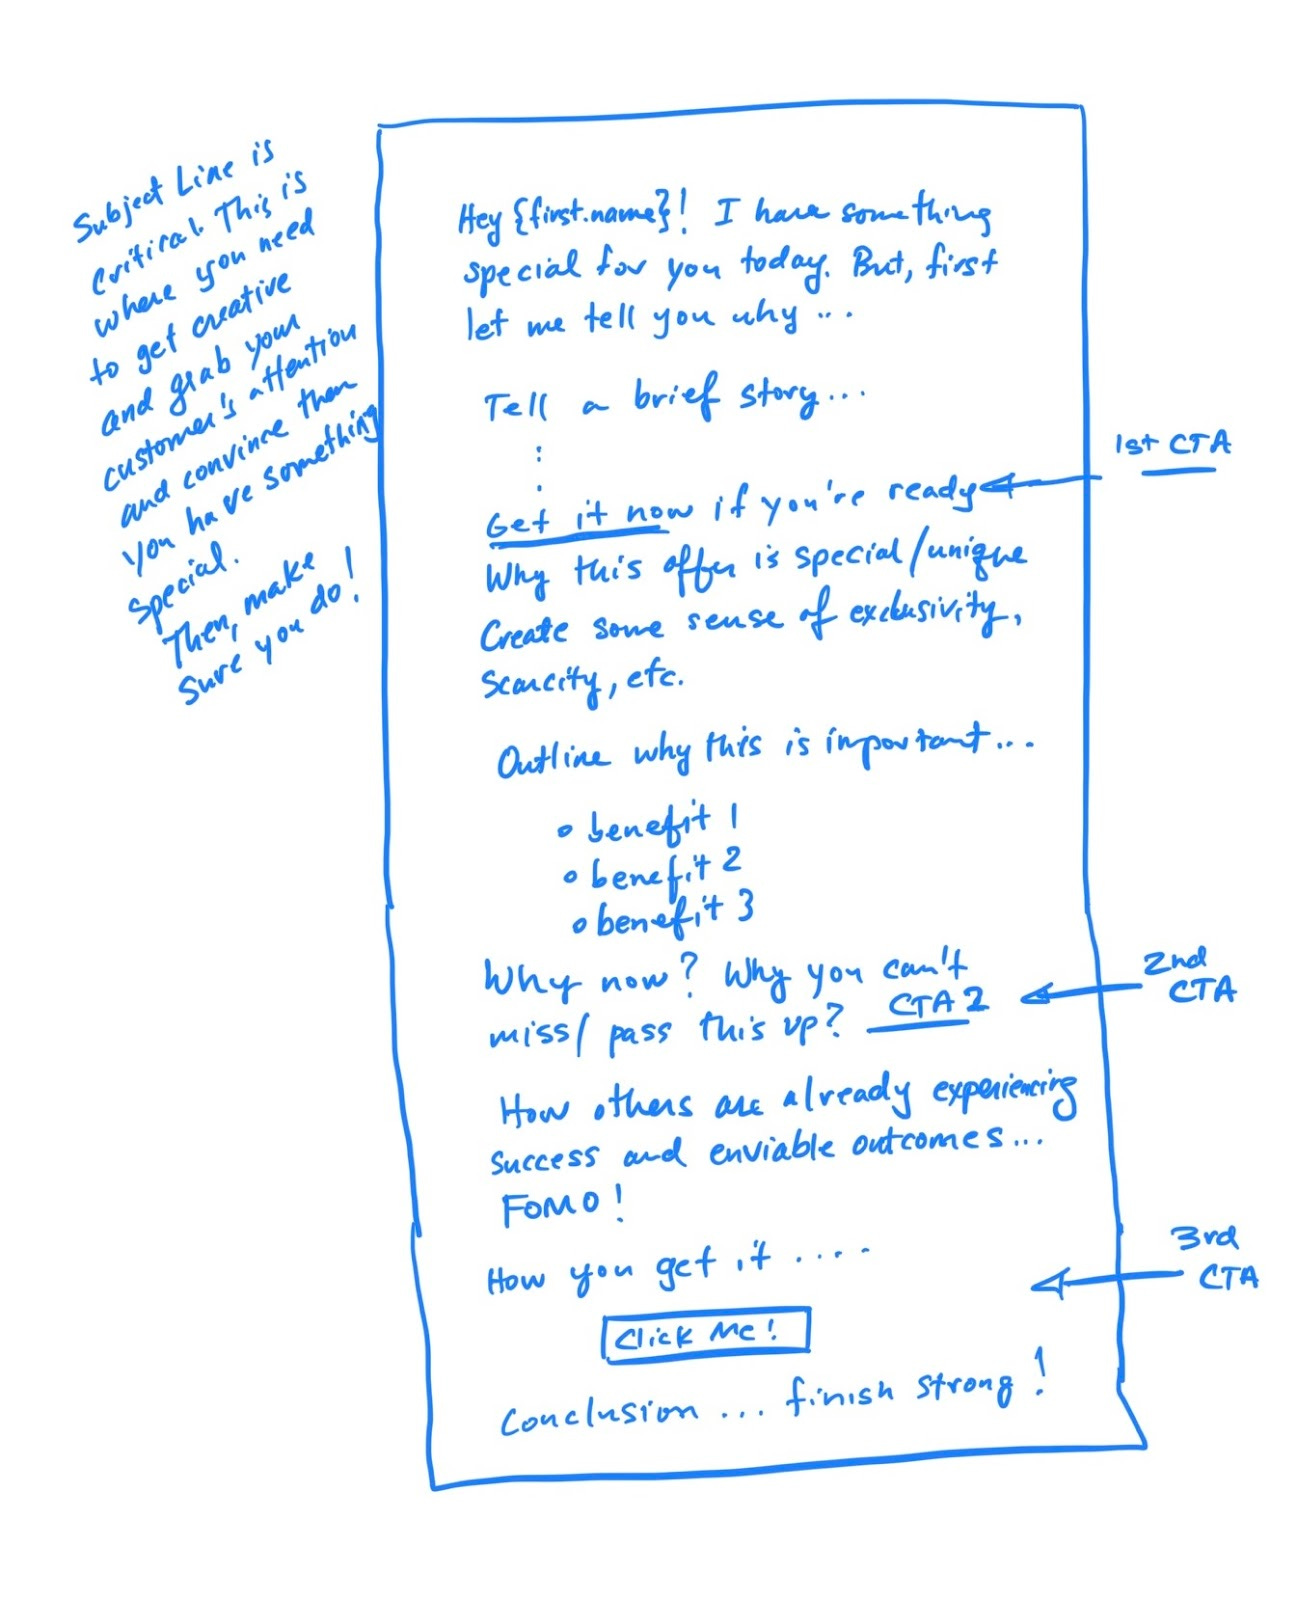 Subject Line is
critical. This is
where you need
to get creative
and grab your
customer's attention
and convince them
you have something
special.
Then, make
sure you do!
Hey {first.name}! I have something
special for you today. But, first
let me tell you why ...
Tell a brief story...
:
.
Get it now if you're ready
1st CTA
Why this offer is special/unique
Create some sense of exclusivity,
scarcity, etc.
Outline why this is important...
• benefit 1
• benefit 2
• benefit 3
Why now? Why you can't
miss/pass this up? CTA 2
2nd
CTA
How others are already experiencing
success and enviable outcomes...
FOMO!
How you get it ....
3rd
CTA
Click Me!
Conclusion ... finish strong!